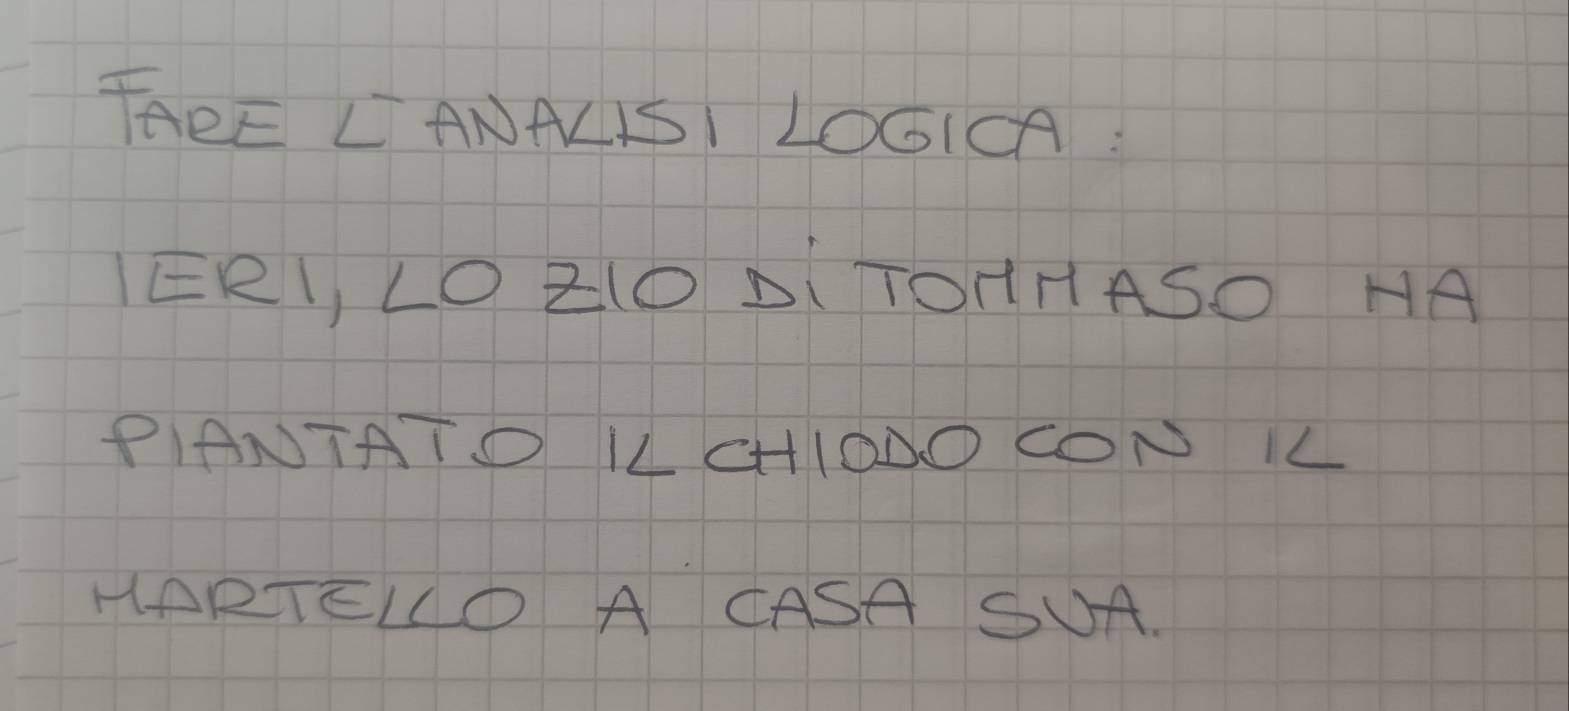 FARE L'ANALISI LOGICA:
IERI, LO ZIO DI TOMMASO HA
PIANTATO IL CHIODO CON IL
MARTELLO A CASA SUA.